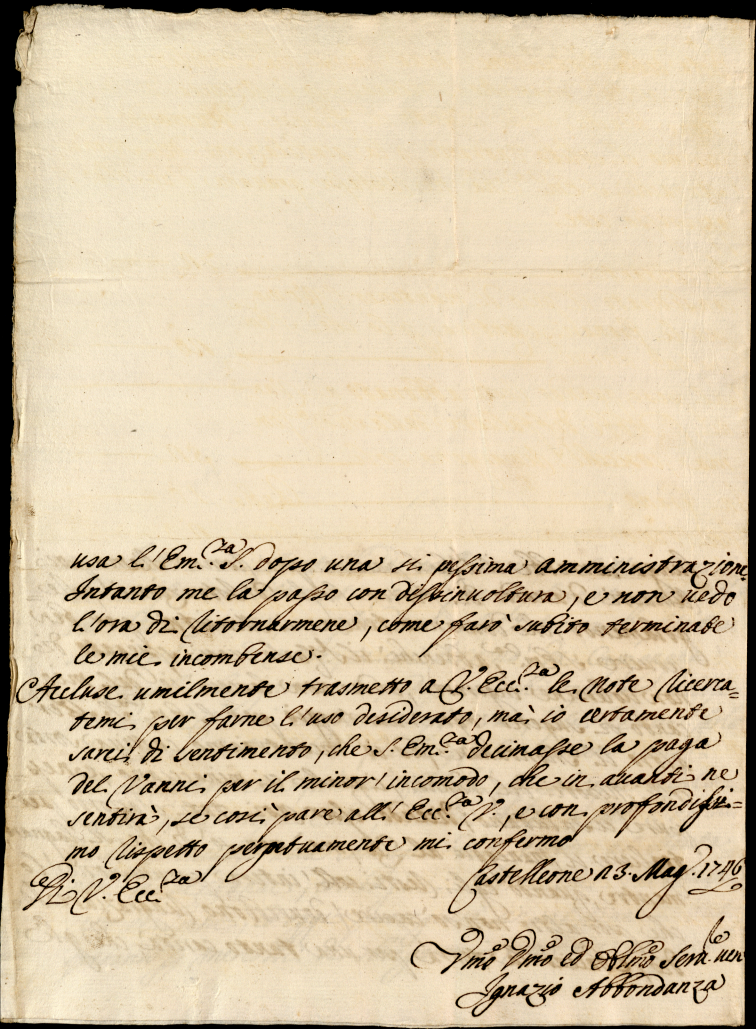 usa l'Em.za S. dopo una sì pessima amministrazione.
Intanto me la passo con dissinvoltura, e non vedo
l'ora di ritornarmene, come farò subito terminate
le mie incombense.
Accluse umilmente trasmetto a V. Ecc.za le Note ricerca=
temi per farne l'uso desiderato, mà io certamente
sarei di sentimento, che S. Em.za decinasse la paga
del Vanni per il minor' incomodo, che in avanti ne
sentirà, se così pare all' Ecc.za V., e con profondissi=
mo rispetto perpetuamente mi confermo
Di V. Ecc.za
Castelleone a 3. Mag.o 1746
Vmo Dmo ed Obblmo Serv.re ven
Ignazio Abbondanza